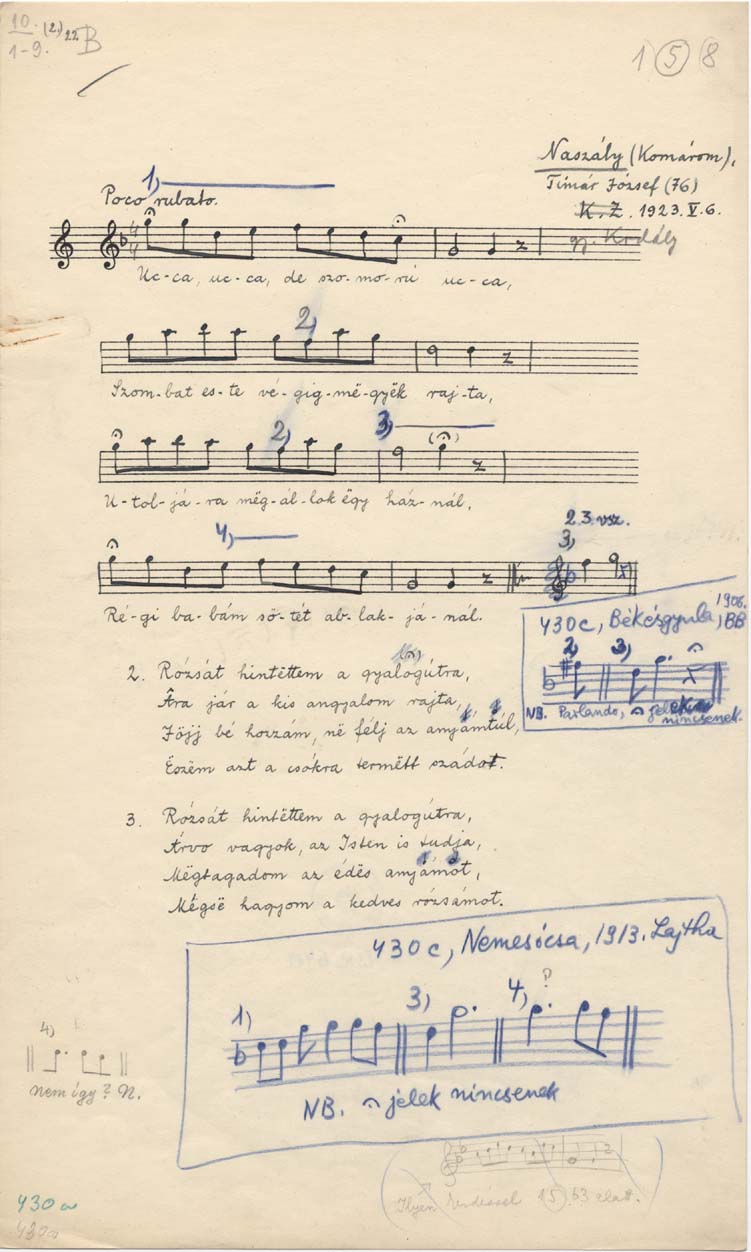 10. (2.) 22 B
1-9.
1 5 8
Naszály (Komárom),
Tímár József (76)
K. Z. 1923. V. 6.
gy. Kodály
1)
Poco rubato.
Uc-ca, uc-ca, de szo-mo-rú uc-ca,
2)
Szom-bat es-te vé-gig-më-gyëk raj-ta,
2) 3)
U-tol-já-ra mëg-ál-lok ëgy ház-nál,
4)
2. 3. vsz.
3)
Ré-gi ba-bám sö-tét ab-lak-já-nál.
430c, Békésgyula, 1906. BB
2) 3)
NB. Parlando, jelek nincsenek.
2. Rózsát hintëttem a gyalogútra,
Ára jár a kis angyalom rajta,
Jöjj bé hozzám, në félj az anyámtúl,
Ëszëm azt a csókra termëtt szádot.
3. Rózsát hintëttem a gyalogútra,
Árvo vagyok, az Isten is tudja,
Mëgtagadom az édës anyámot,
Mégsë hagyom a kedves rózsámot.
430c, Nemesócsa, 1913. Lajtha
1) 3) 4) ?
NB. jelek nincsenek
4)
nem így? N.
Ilyen 15) 63 alatt.
430a
430a